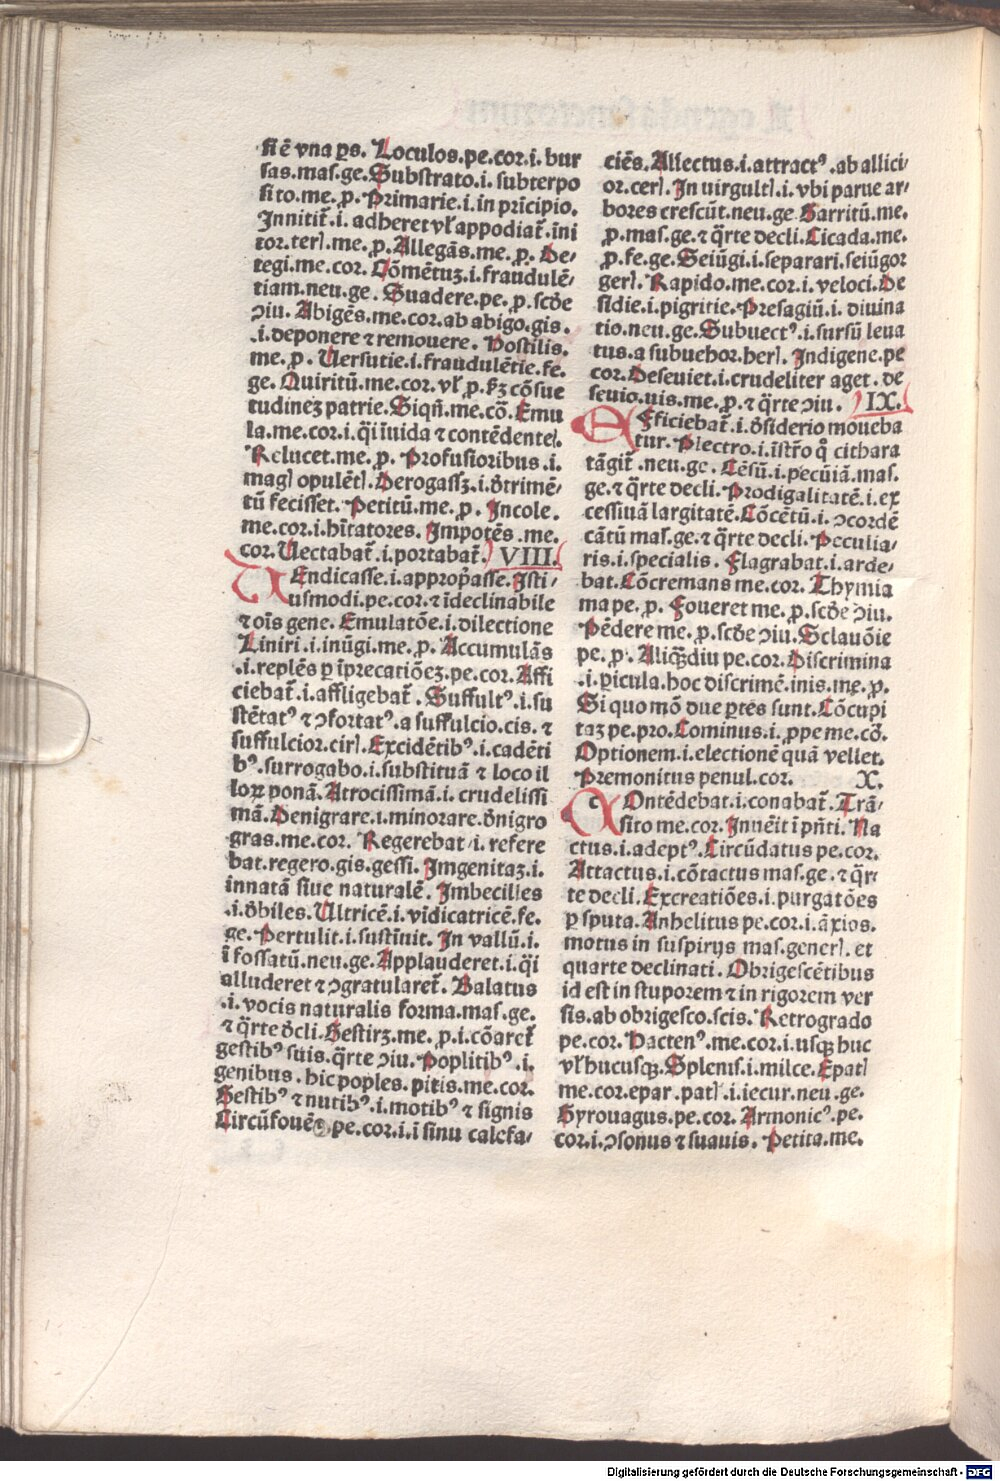 ſi ē vna ꝑs. Loculos.pe.cor.i.bur
ſas.maſ.ge.Subſtrato.i.ſubterpo
ſito.me.ꝓ.Primarie.i.in prīcipio.
Innitit̄.i.adheret vl̄ appodiat̄.ini
tor.terſ.me.ꝓ.Allegās.me.ꝓ.De⸗
tegi.me.cor.Cōmētuꝫ.i.fraudulē⸗
tiam.neu.ge.Suadere.pe.ꝓ.ſcðe
ↄiu.Abigēs.me.cor.ab abigo.gis.
.i.deponere ⁊ remouere.Poſtilis.
me.ꝓ.Uerſutie.i.fraudulētie.fe.
ge.Quiritū.me.cor.vl̄ ꝓ.ſꝫ cōſue
tudineꝫ patrie.Siqñ.me.cō.Emu
la.me.cor.i.q̄i īuida ⁊ contēdenteſ.
Relucet.me.ꝓ.Profuſioribus.i.
magſ opulētſ.Derogaſſꝫ.i.ðtrimē⸗
tū feciſſet.Petitū.me.ꝓ.Incole.
me.cor.i.hītatores.Impotēs.me.
cor.Uectabat̄.i.portabat̄. VIII.
UEndicaſſe.i.appropaſſe.Iſti⸗
uſmodi.pe.cor.⁊ īdeclinabile
⁊ oīs gene.Emulatōe.i.dilectione
Liniri.i.inūgi.me.ꝓ.Accumulās
.i.replēs ꝑ īprecatiōeꝫ.pe.cor.Affi
ciebat̄.i.affligebat̄.Suffultꝰ.i.ſu
ſtētatꝰ ⁊ ↄfortatꝰ.a ſuffulcio.cis.⁊
ſuffulcior.cirſ.Excidētibꝰ.i.cadēti
bꝰ.ſurrogabo.i.ſubſtituā ⁊ loco il
loꝝ ponā.Atrociſſimā.i.crudeliſſi
mā.Denigrare.i.minorare.ðnigro
gras.me.cor.Regerebat.i.refere
bat.regero.gis.geſſi.Imgenitaꝫ.i.
innatā ſiue naturalē.Imbecilles
.i.ðbiles.Ultricē.i.vīdicatricē.fe.
ge.Pertulit.i.ſuſtīnit.In vallū.i.
ī foſſatū.neu.ge.Applauderet.i.q̄i
alluderet ⁊ ↄgratularet̄.Balatus
.i.vocis naturalis forma.maſ.ge.
⁊ q̄rte ðcli.Geſtirꝫ.me.ꝓ.i.cōaret̄
geſtibꝰ ſuis.q̄rte ↄiu.Poplitibꝰ.i.
genibus.hic poples.pitis.me.cor.
Geſtibꝰ ⁊ nutibꝰ.i.motibꝰ ⁊ ſignis
Circūfouēs.pe.cor.i.i ſinu calefa⸗
ciēs.Allectus.i.attractꝰ.ab allici⸗
or.cerſ.In uirgultſ.i.vbi parue ar⸗
bores creſcūt.neu.ge.Garritū.me.
ꝓ.maſ.ge.⁊ q̄rte decli.Cicada.me.
ꝓ.fe.ge.Seiūgi.i.ſeparari.ſeiūgor
gerſ.Rapido.me.cor.i.veloci.De
ſidie.i.pigritie.Preſagiū.i.diuina
tio.neu.ge.Subuectꝰ.i.ſurſū leua
tus.a ſubuehor.herſ.Indigene.pe
cor.Deſeuiet.i.crudeliter aget.de
ſeuio.uis.me.ꝓ.⁊ q̄rte ↄiu. IX.
EFficiebat̄.i.ðſiderio moueba
tur.Plectro.i.īſtr̄o qͦ cithara
tāgit̄.neu.ge.Cēſū.i.pecūiā.maſ.
ge.⁊ q̄rte decli.Prodigalitatē.i.ex
ceſſiuā largitatē.Cōcētū.i.ↄcordē
cātū maſ.ge.⁊ q̄rte decli.Peculia⸗
ris.i.ſpecialis.Flagrabat.i.arde⸗
bat.Cōcremans me.cor.Thymia
ma pe.ꝓ.Foueret me.ꝓ.ſcðe ↄiu.
Pēdere me.ꝓ.ſcðe ↄiu.Sclauōie
pe.ꝓ.Aliqͣdiu pe.cor.Diſcrimina
.i.ꝑicula.hoc diſcrimē.inis.me.ꝓ.
Si quo mō due ꝑtēs ſunt.Cōcupi
taꝫ pe.pro.Cominus.i.ꝓpe me.cō.
Optionem.i.electionē quā vellet.
Premonitus penul.cor. X.
COntēdebat.i.conabat̄.Trā⸗
ſito me.cor.Inuēit ī pn̄ti.Na
ctus.i.adeptꝰ.Circūdatus pe.cor.
Attactus.i.cōtactus maſ.ge.⁊ q̄r⸗
te decli.Excreatiōes.i.purgatōes
ꝑ ſputa.Anhelitus pe.cor.i.āxios.
motus in ſuſpirijs maſ.generſ.et
quarte declinati.Obrigeſcētibus
id eſt in ſtuporem ⁊ in rigorem ver
ſis.ab obrigeſco.ſcis.Retrogrado
pe.cor.Hactenꝰ.me.cor.i.uſqꝫ huc
vl̄ hucuſqꝫ.Splenſ.i.milce.Epatſ
me.cor.epar.patſ.i.iecur.neu.ge.
Gyrouagus.pe.cor.Armonicꝰ.pe.
cor.i.ↄſonus ⁊ ſuauis.Petita.me.
Digitalisierung gefördert durch die Deutsche Forschungsgemeinschaft - DFG